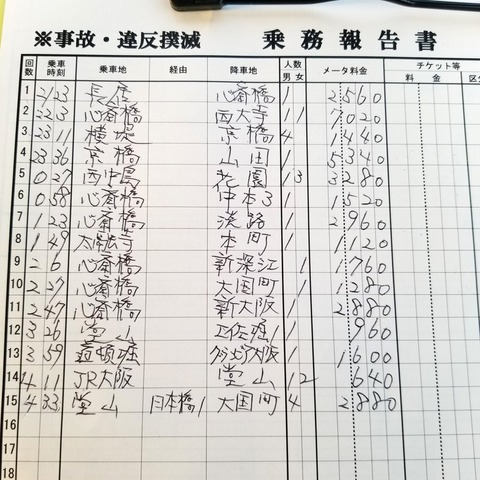 ※事故・違反撲滅 乗務報告書
回数 乗車時刻 乗車地 経由 降車地 人数 男 女 メータ料金 チケット等 料金 区分
1 21 23 長居 心斎橋 1 2560
2 22 3 心斎橋 西大寺 1 1 7020
3 23 11 横堤 京橋 4 1440
4 23 36 京橋 山田 1 5340
5 0 27 西中島 花園 1 3 3280
6 0 58 心斎橋 中本3 1 1520
7 1 23 心斎橋 淡路 1 2960
8 1 49 太融寺 本町 1 1120
9 2 6 心斎橋 新深江 1 1760
10 2 27 心斎橋 大国町 1 1280
11 2 47 心斎橋 新大阪 1 2880
12 3 26 堂山 土佐堀 1 960
13 3 59 道頓堀 大阪 1 1600
14 4 11 JR大阪 堂山 1 2 640
15 4 33 堂山 日本橋1 大国町 4 2880
16
17
18